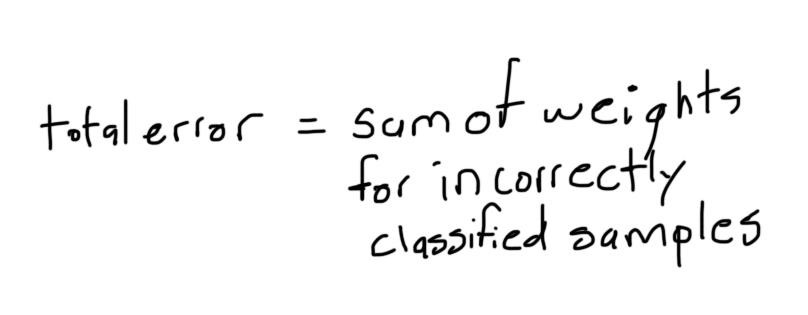 total error = sum of weights
for incorrectly
classified samples